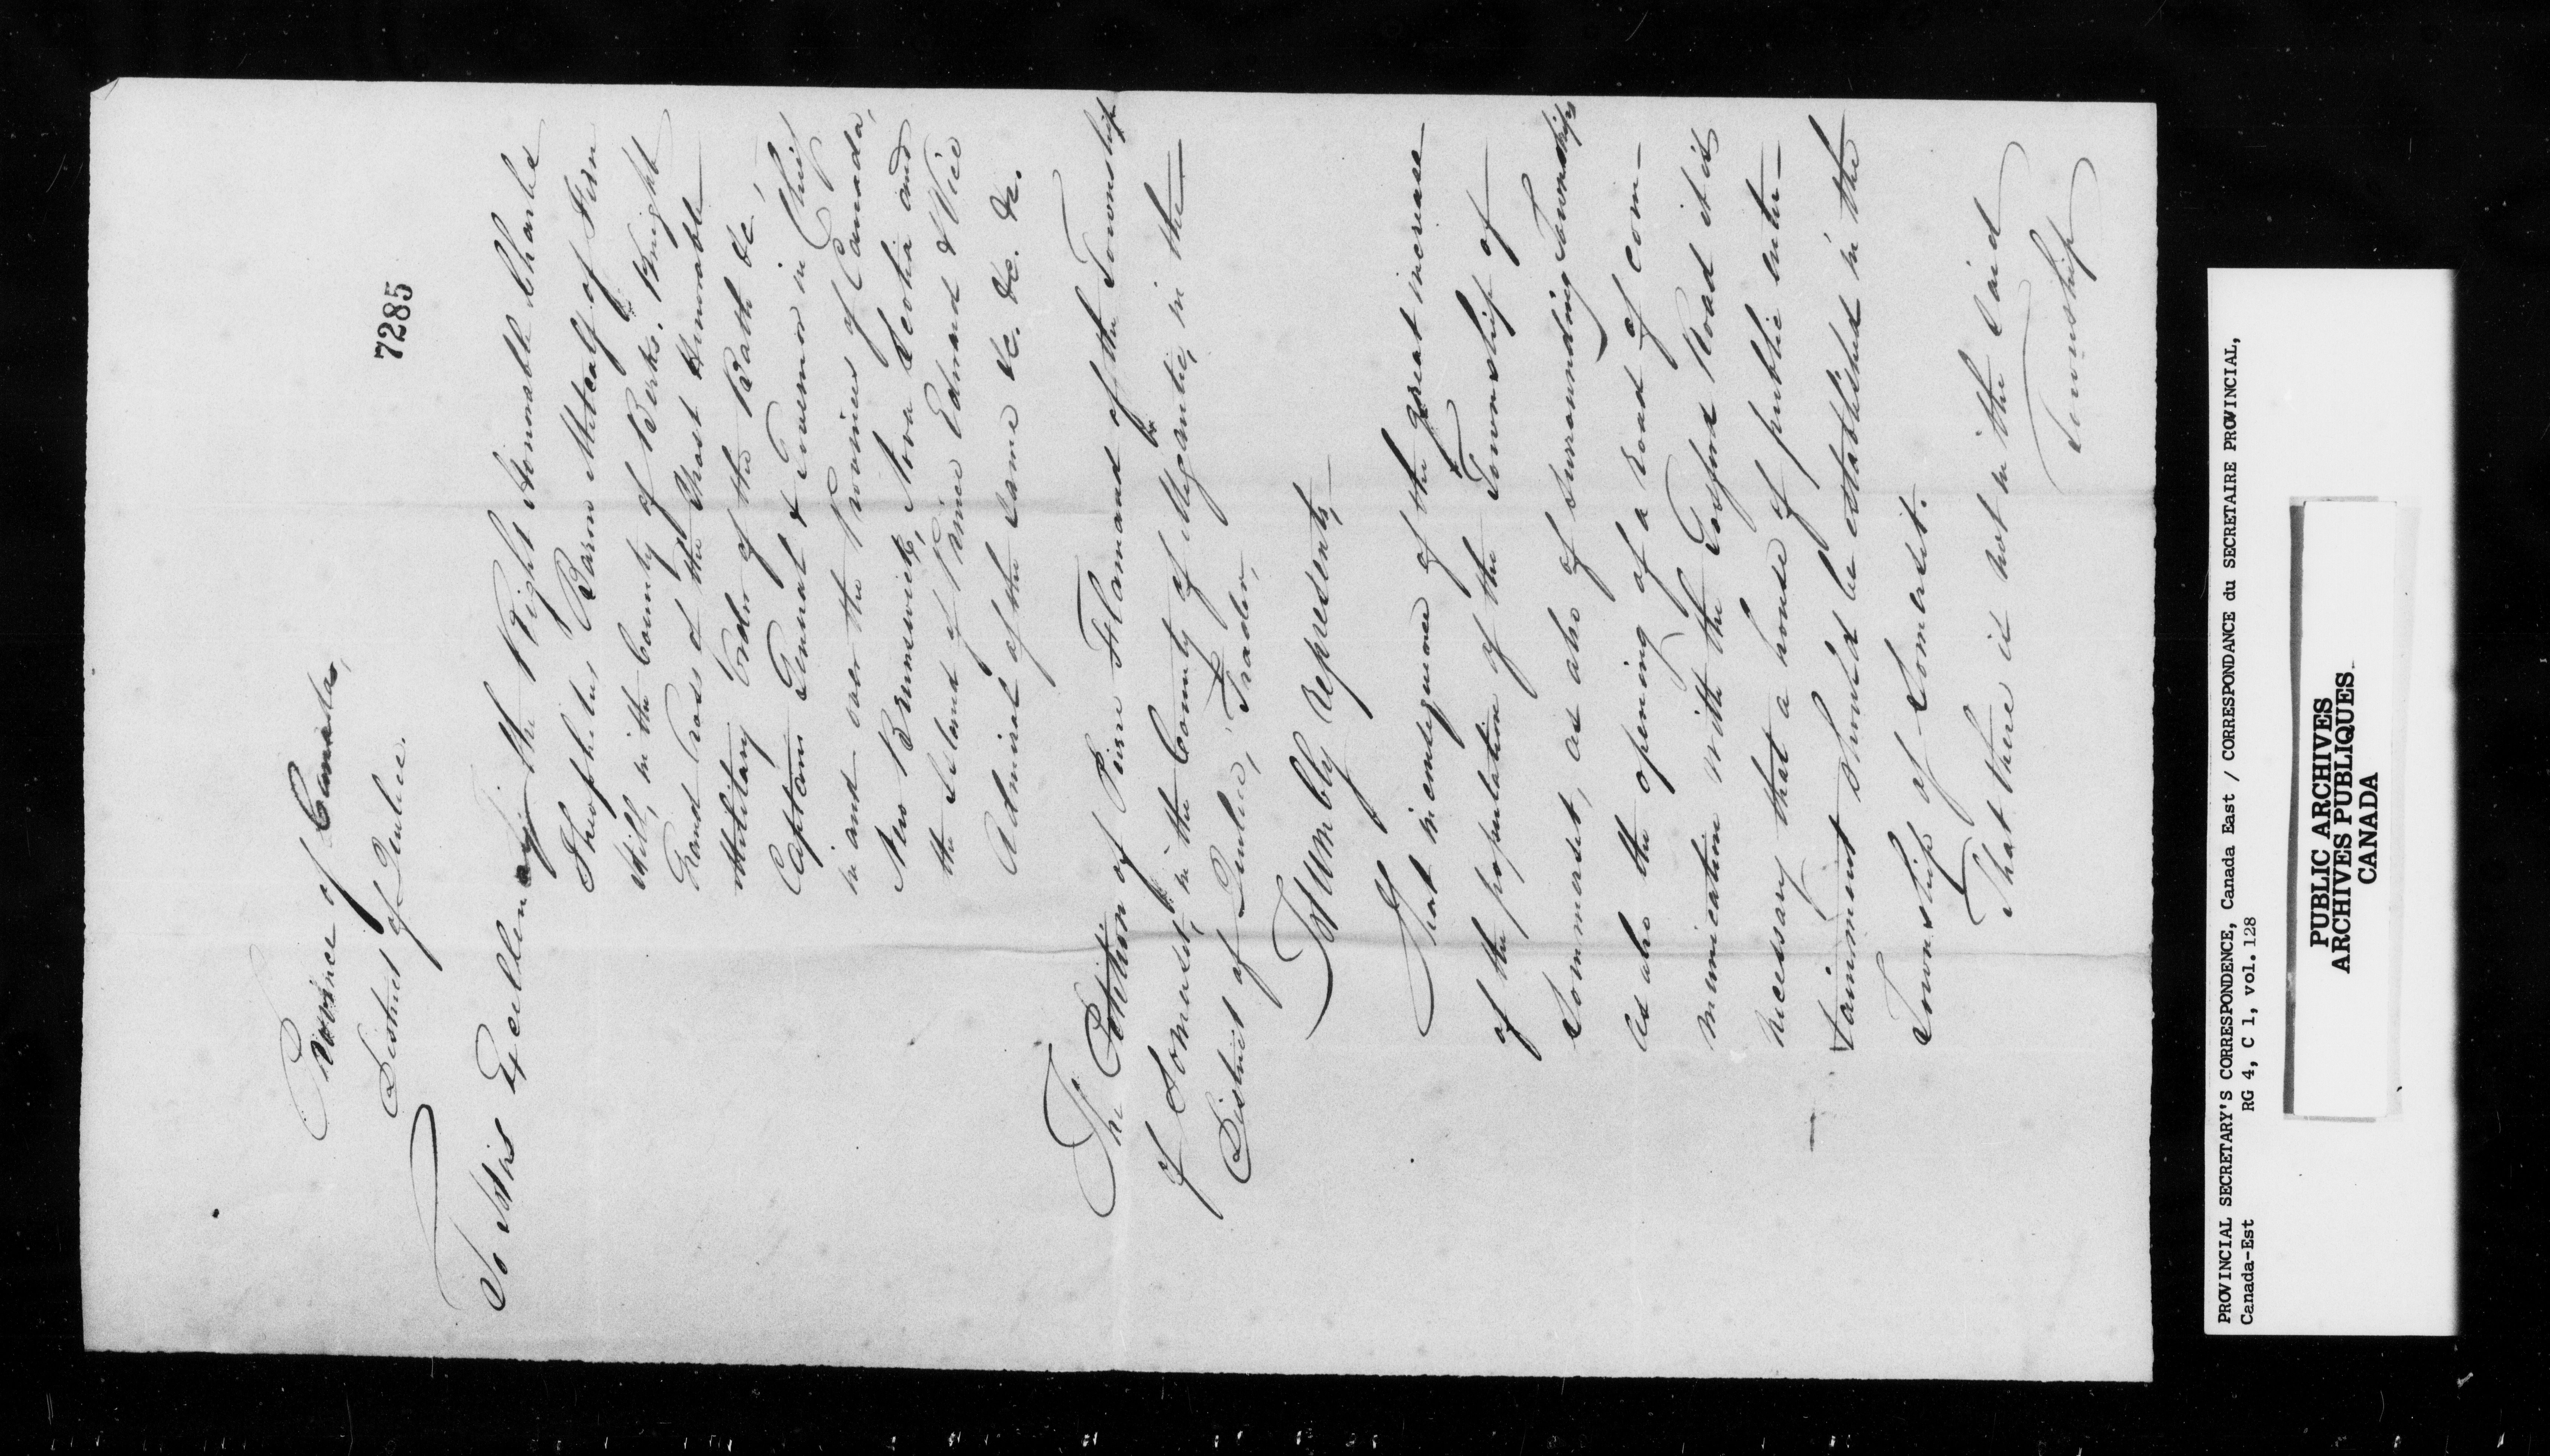 7285
Province of Canada,
District of Quebec.
To His Excellency the Right Honorable Charles
Theophilus Baron Metcalf of Fern
Hill, in the County of Berks. Knight
Grand Cross of the Most Honorable
Military Order of the Bath &c,
Captain General & Governor in Chief
in and over the Provinces of Canada,
New Brunswick, Nova Scotia and
the Island of Prince Edward & Vice
Admiral of the same &c. &c. &c.
The Petition of Pierre Flamand of the Township
of Somerset, in the County of Megantic, in the
District of Quebec, Trader,
Humbly Represents,
That in consequence of the great increase
of the population of the Township of
Sommerset, as also of surrounding Townships
as also the opening of a Road of com-
munication with the Gosford Road it is
necessary that a house of public enter-
tainment should be established in the
Township of Somerset.
That there is not in the said
Township
PROVINCIAL SECRETARY'S CORRESPONDENCE, Canada East / CORRESPONDANCE du SECRETAIRE PROVINCIAL,
Canada-Est RG 4, C 1, vol. 128
PUBLIC ARCHIVES
ARCHIVES PUBLIQUES
CANADA